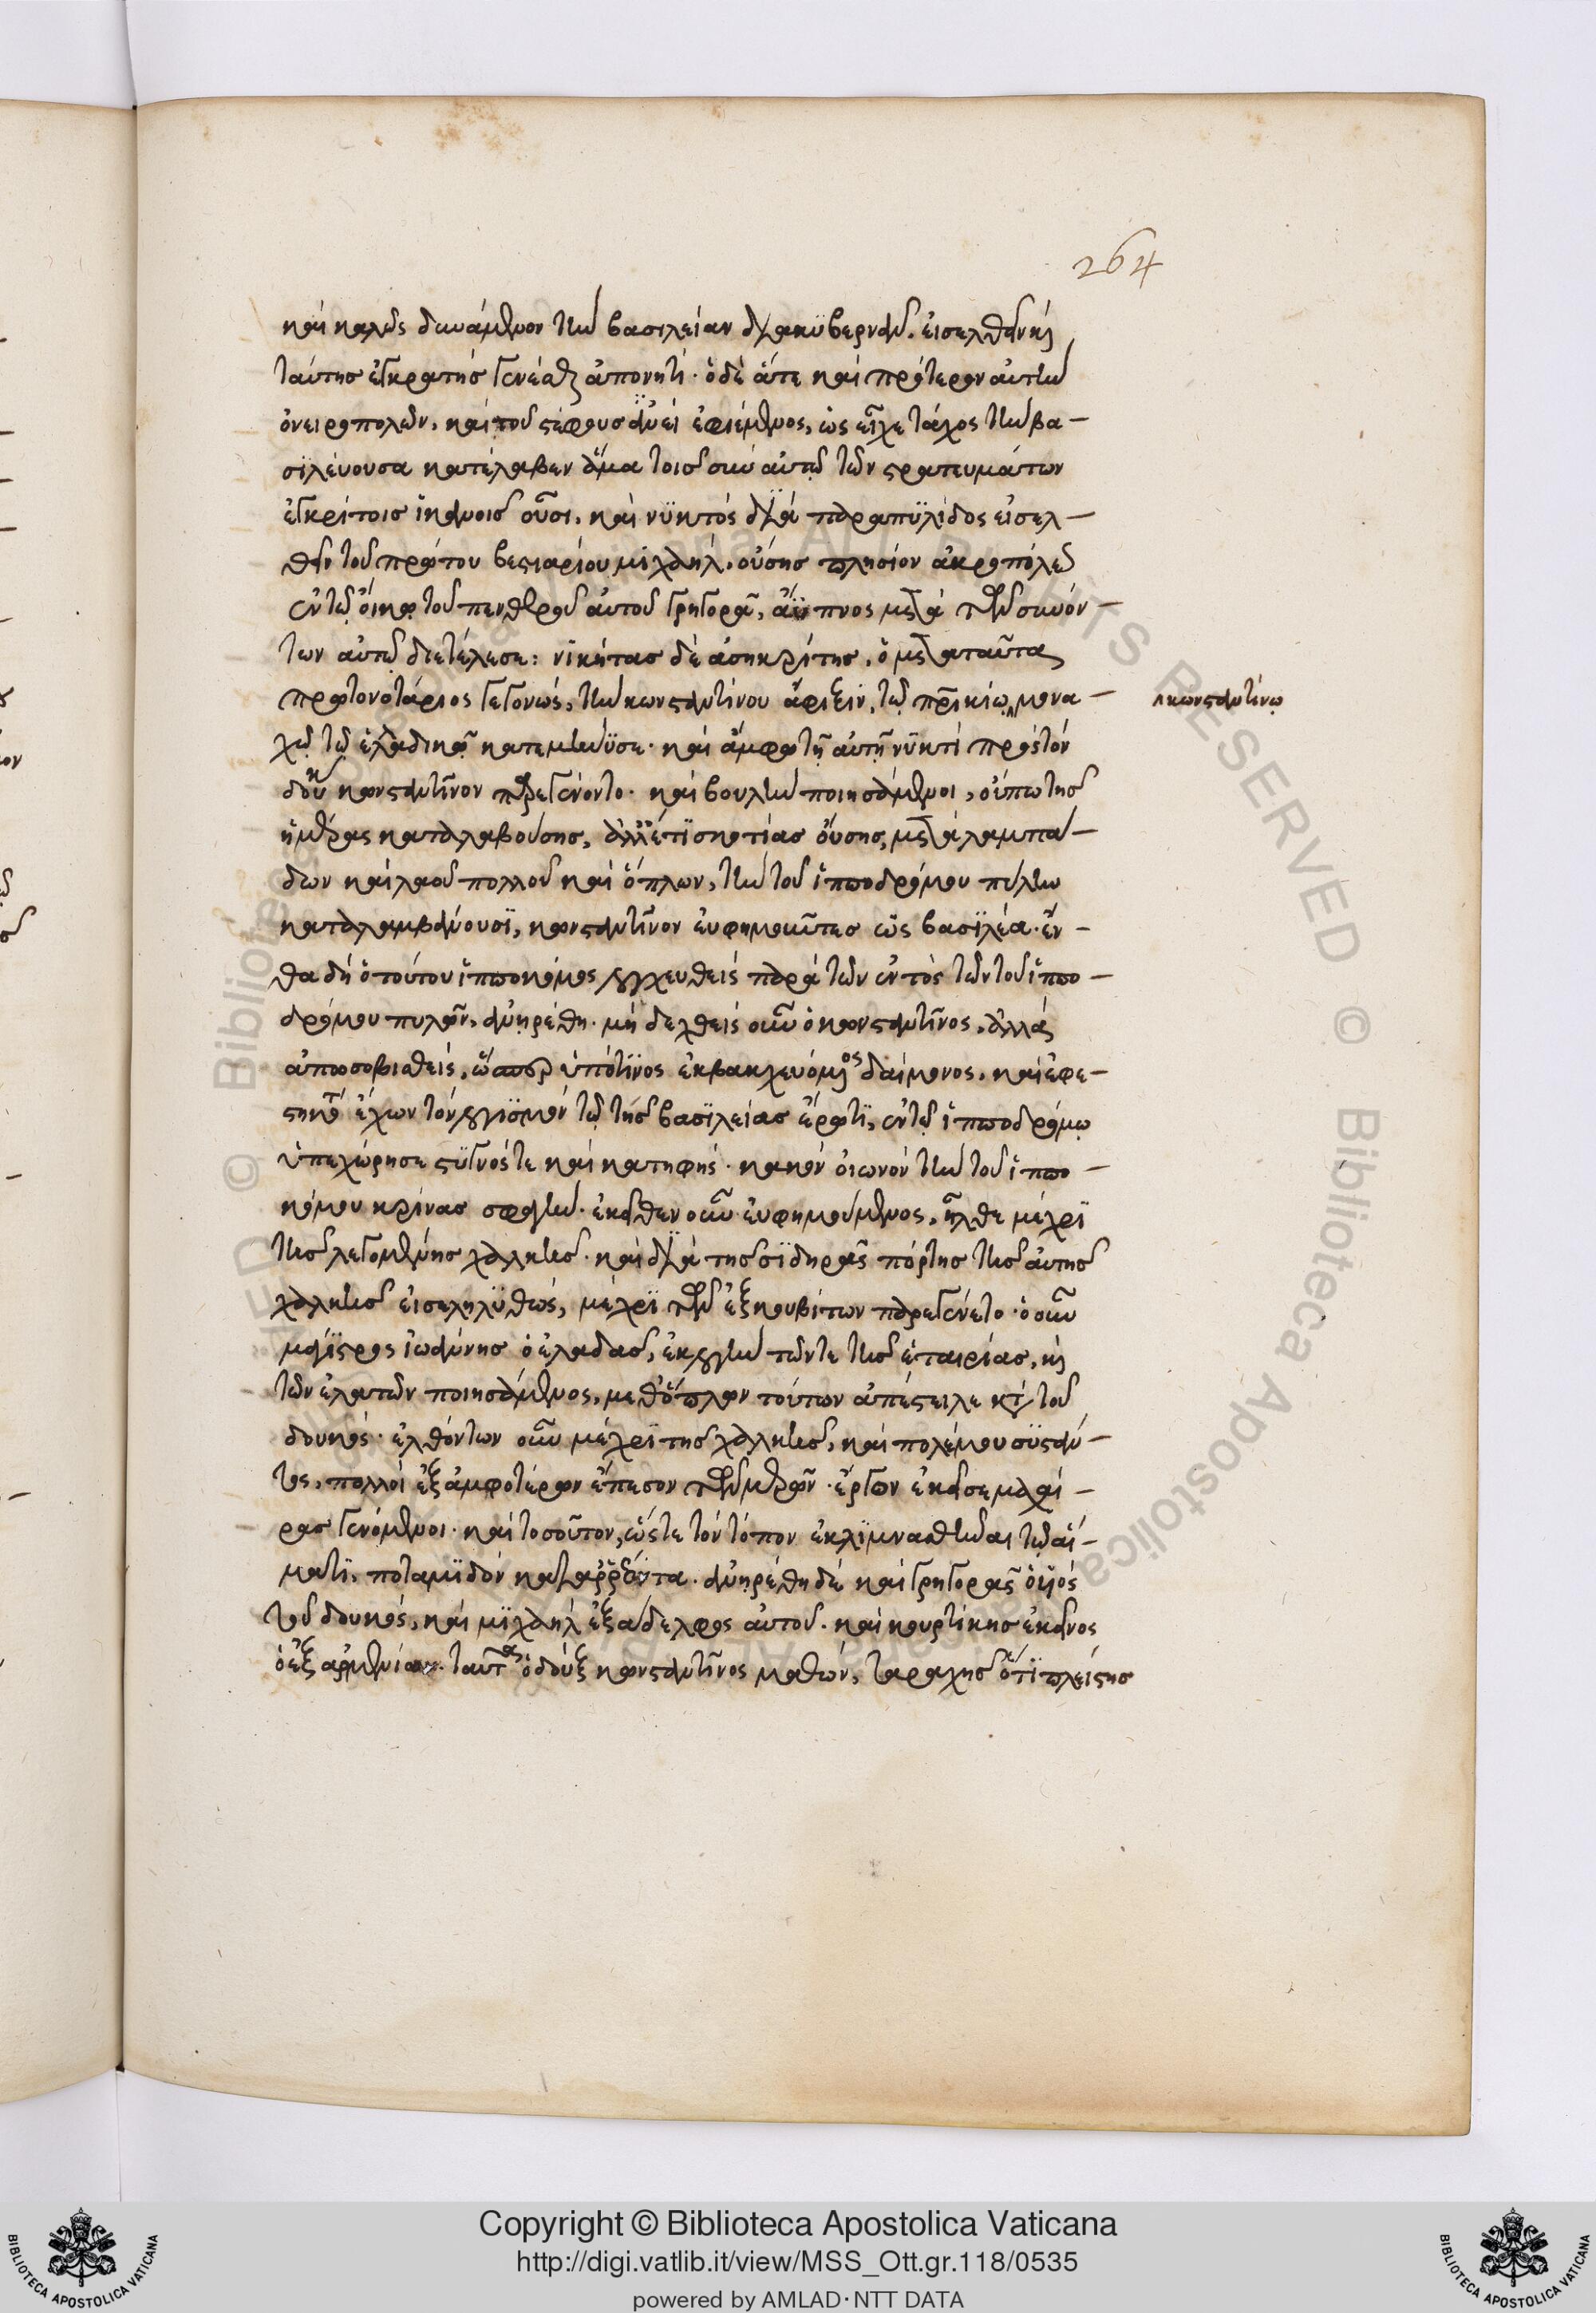 264
καὶ καλῶς δυνάμενον τὴν βασιλείαν διακυβερνᾶν. εἰσελθεῖν καὶ
ταύτης ἐγκρατὴς γενέσθαι ἀπονητί· ὁ δὲ ἅτε καὶ πρότερον αὐτὴν
ὀνειροπολῶν, καὶ τοῦ στέφους ἀεὶ ἐφιέμενος, ὡς εἶχε τάχος τὴν βα-
σιλεύουσα κατέλαβεν ἅμα τοῖς σὺν αὐτῷ τῶν στρατευμάτων
ἐγκρίτοις ἱκανοῖς οὖσι. καὶ νυκτὸς διὰ παραπυλίδος εἰσελ-
θὼν τοῦ πρώτου βεστιαρίου μιχαὴλ, οὔσης πλησίον ἀκροπόλεως
ἐν τῷ οἴκῳ τοῦ πενθεροῦ αὐτοῦ γρηγορᾶ, ἄϋπνος μετὰ τῶν συνόν-
των αὐτῷ διετέλεσε: νικήτας δὲ ἀσηκρίτης, ὁ μετὰ ταῦτα
πρωτονοτάριος γεγονώς, τὴν κωνσταντίνου ἄφιξιν, τῷ πατρικίῳ μονα-
κωνσταντίνῳ
χῷ τῷ ἐλαδικῷ κατεμήνυσε· καὶ ἄμφω τῇ αὐτῇ νυκτὶ πρὸς τὸν
δοῦκα κωνσταντῖνον παρεγένοντο· καὶ βουλὴν ποιησάμενοι, οὔπω τῆς
ἡμέρας καταλαβούσης, ἀλλ' ἔτι σκοτίας οὔσης, μετὰ λαμπά-
δων καὶ λαοῦ πολλοῦ καὶ ὅπλων, τὴν τοῦ ἱπποδρόμου πύλην
καταλαμβάνουσι, κωνσταντῖνον εὐφημοῦντες ὡς βασιλέα· ἔν-
θα δὴ ὁ τούτου ἱπποκόμος ἐγχευθεὶς παρὰ τῶν ἐντὸς τῶν τοῦ ἱππο-
δρόμου πυλῶν, ἀνῃρέθη. μὴ δεχθεὶς οὖν ὁ κωνσταντῖνος, ἀλλὰ
ἀποσοβηθεὶς, ὥσπερ ὑπό τινος ἐκβακχευόμενος δαίμονος, καὶ ἐφε-
στηκότα ἔχων τὸν λογισμὸν τῷ τῆς βασιλείας ἔρωτι, ἐν τῷ ἱπποδρόμῳ
ὑπεχώρησε στυγνός τε καὶ κατηφής· κακὸν οἰωνὸν τὴν τοῦ ἱππο-
κόμου κρίνας σφαγήν· ἐκεῖθεν οὖν εὐφημούμενος, ἦλθε μέχρι
τῆς λεγομένης χαλκῆς· καὶ διὰ τῆς σιδηρᾶς πόρτης τῆς αὐτῆς
χαλκῆς εἰσεληλυθώς, μέχρι τῶν ἐξκουβίτων παρεγένετο· ὁ οὖν
μάγιστρος ἰωάννης ὁ ἐλαδᾶς, ἐκλογὴν τῶν τε τῆς ἑταιρίας, καὶ
τῶν ἐλατῶν ποιησάμενος, μεθ' ὅπλων τούτων ἀπέστειλε κατὰ τοῦ
δουκός· ἐλθόντων οὖν μέχρι τῆς χαλκῆς, καὶ πολέμου συστάν-
τος, πολλοὶ ἐξ ἀμφοτέρων ἔπεσον τῶν μερῶν· ἔργον ἐκεῖσε μαχαί-
ρας γενόμενοι· καὶ τοσοῦτον, ὥστε τὸν τόπον ἐκλιμνασθῆναι τῷ αἵ-
ματι, ποταμιδὸν καταρρέοντα. ἀνῃρέθη δὲ καὶ γρηγορᾶς ὁ υἱὸς
τοῦ δουκός, καὶ μιχαὴλ ἐξάδελφος αὐτοῦ. καὶ κουρτίκης ἐκεῖνος
ὁ ἐξ ἀρμενίων. ταῦτα ὁ δοὺξ κωνσταντῖνος μαθών, ταραχῆς ὅτι πλείστης
Copyright © Biblioteca Apostolica Vaticana
http://digi.vatlib.it/view/MSS_Ott.gr.118/0535
powered by AMLAD·NTT DATA